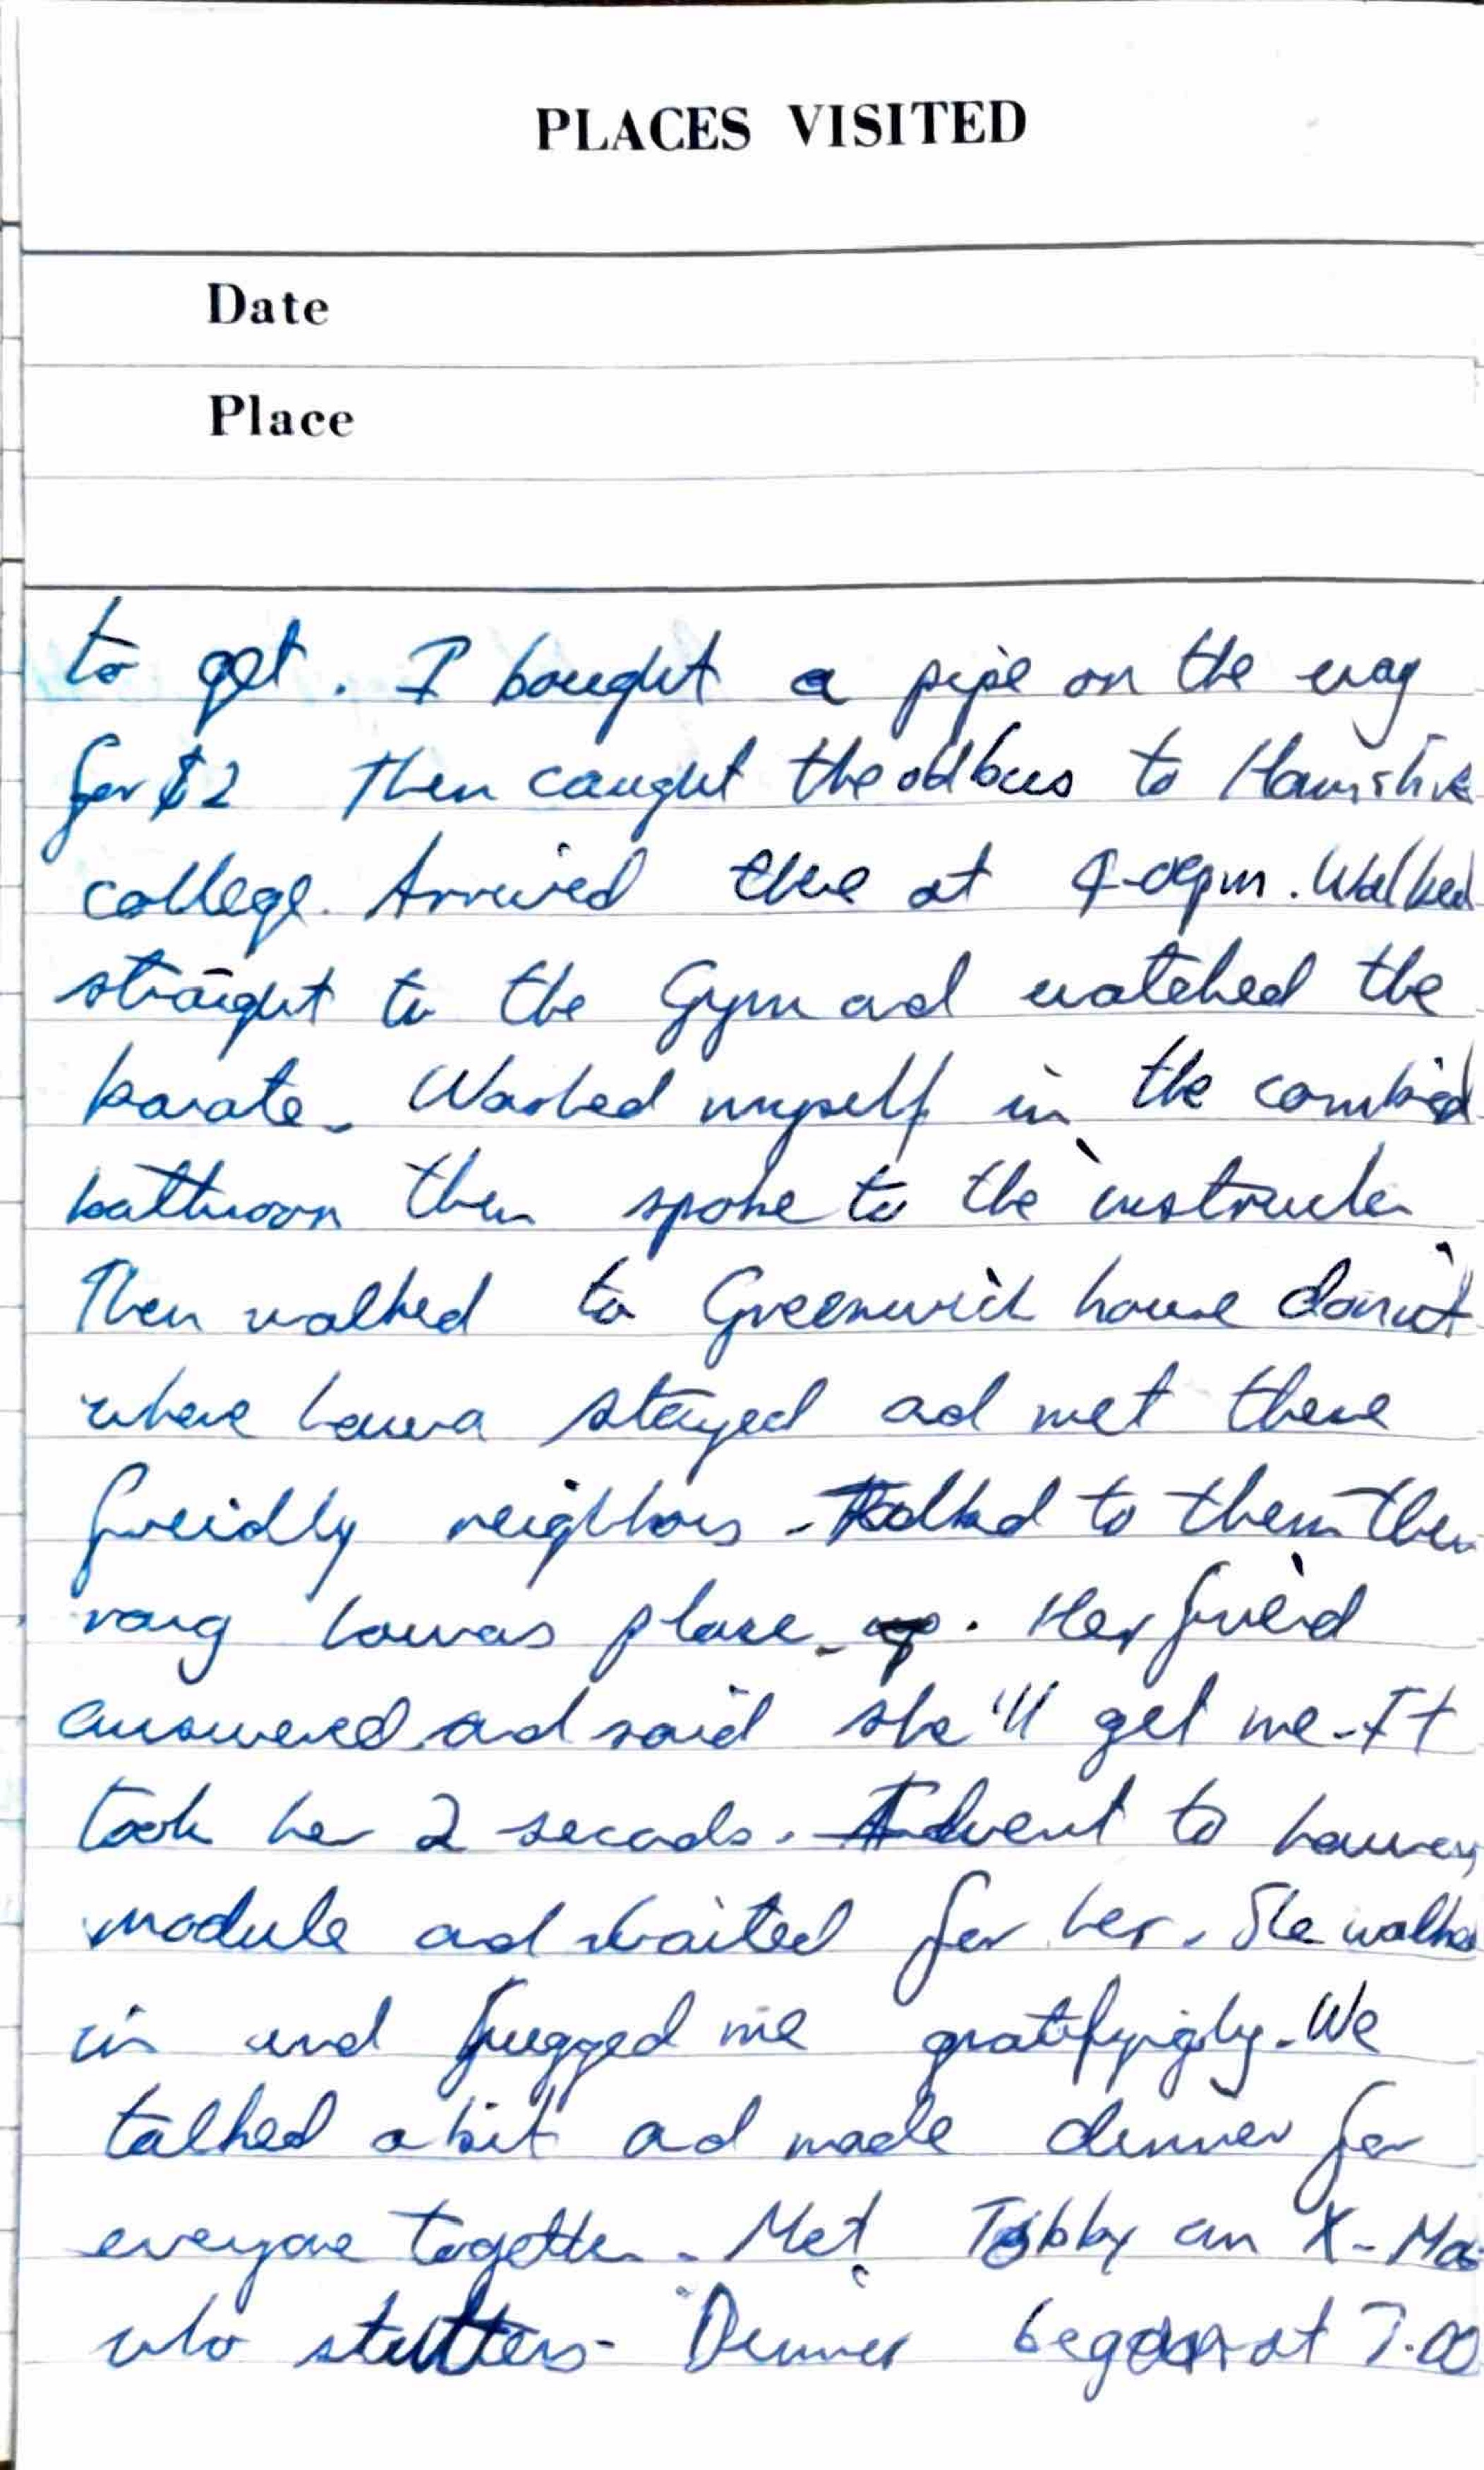 PLACES VISITED
Date
Place
to get. I bought a pipe on the way
for $2 then caught the odbus to
college. Arrived there at 4-00pm. Walked
straight to the Gym ad watched the
karate. Washed myself in the combied
bathroom then spoke to the instructer
Then walked to Greenwich house
where Laura stayed ad met there
freidly neighbors - Talked to them then
rang Lauras place. Her freid
answered ad said she'll get me. It
took her 2 secods. I went to
module ad waited for her. She walked
in and hugged me gratifyigly. We
talked a bit ad made dinner for
everyone together. Met Tobby an X-
who stutters - Dinner began at 7.00